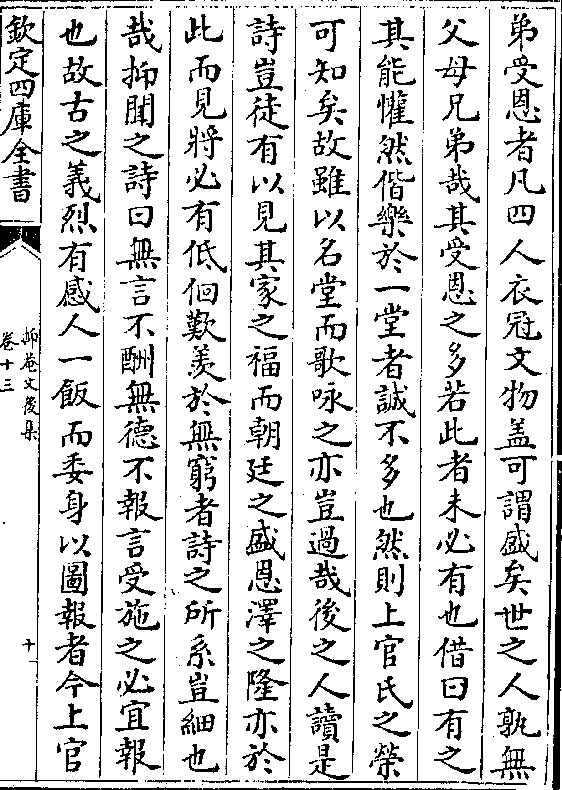 弟受恩者凡四人衣冠文物盖可謂盛矣世之人孰無
父母兄弟哉其受恩之多若此者未必有也借曰有之
其能懽然偕樂於一堂者誠不多也然則上官氏之榮
可知矣故雖以名堂而歌咏之亦豈過哉後之人讀是
詩豈徒有以見其家之福而朝廷之盛恩澤之隆亦於
此而見將必有低佪歎羨於無窮者詩之所系豈細也
哉抑聞之詩曰無言不酬無德不報言受施之必宜報
也故古之義烈有感人一飯而委身以圖報者今上官
欽定四庫全書
抑菴文後集
卷十三
十一